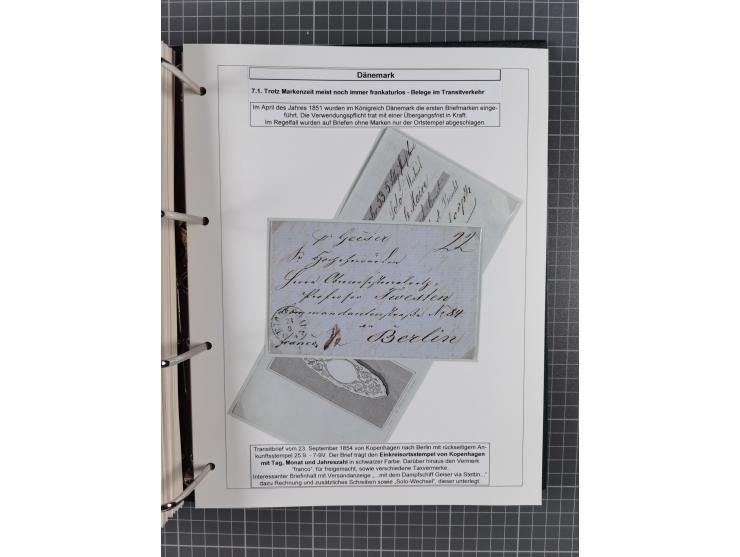 Dänemark
7.1. Trotz Markenzeit meist noch immer frankaturlos - Belege im Transitverkehr
Im April des Jahres 1851 wurden im Königreich Dänemark die ersten Briefmarken einge-
führt. Die Verwendungspflicht trat mit einer Übergangsfrist in Kraft.
Im Regelfall wurden auf Briefen ohne Marken nur der Ortstempel abgeschlagen.
pr Geiser 22
Sr Hochehrwürden
Herrn
Professor Twesten
Commandantenstraße No 84
Berlin
franco
Transitbrief vom 23. September 1854 von Kopenhagen nach Berlin mit rückseitigem An-
kunftsstempel 25.9. - 7-9V. Der Brief trägt den Einkreisortsstempel von Kopenhagen
mit Tag, Monat und Jahreszahl in schwarzer Farbe. Darüber hinaus den Vermerk
"franco", für freigemacht, sowie verschiedene Taxvermerke.
Interessanter Briefinhalt mit Versandanzeige „...mit dem Dampfschiff Geiser via Stettin..."
dazu Rechnung und zusätzliches Schreiben sowie „Solo-Wechsel", dieser unterlegt